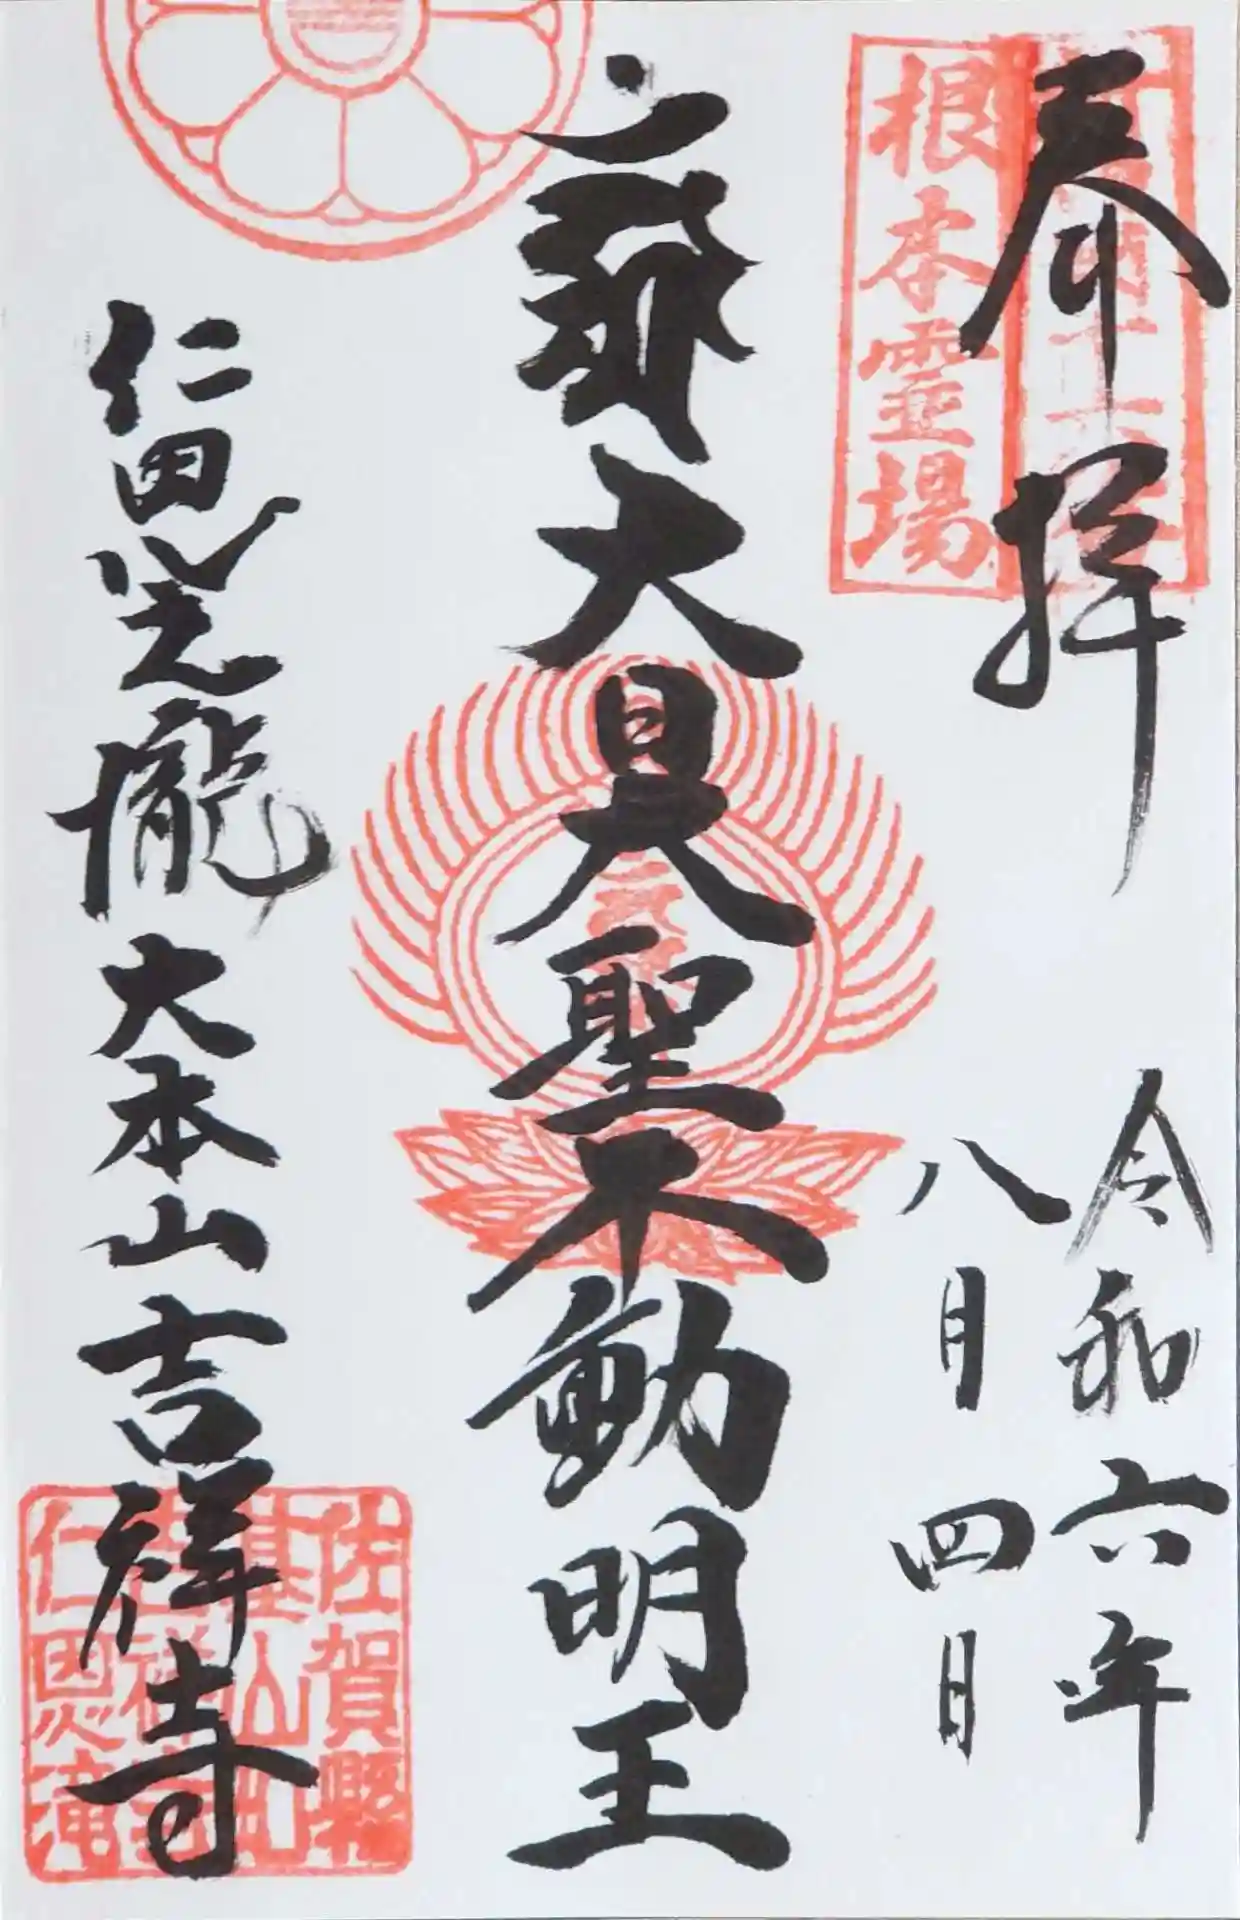 奉拝
根本霊場
令和六年
八月四日
大日大聖不動明王
仁恩之瀧 大本山吉祥寺
佐賀縣
基山町
吉祥寺
仁恩滝